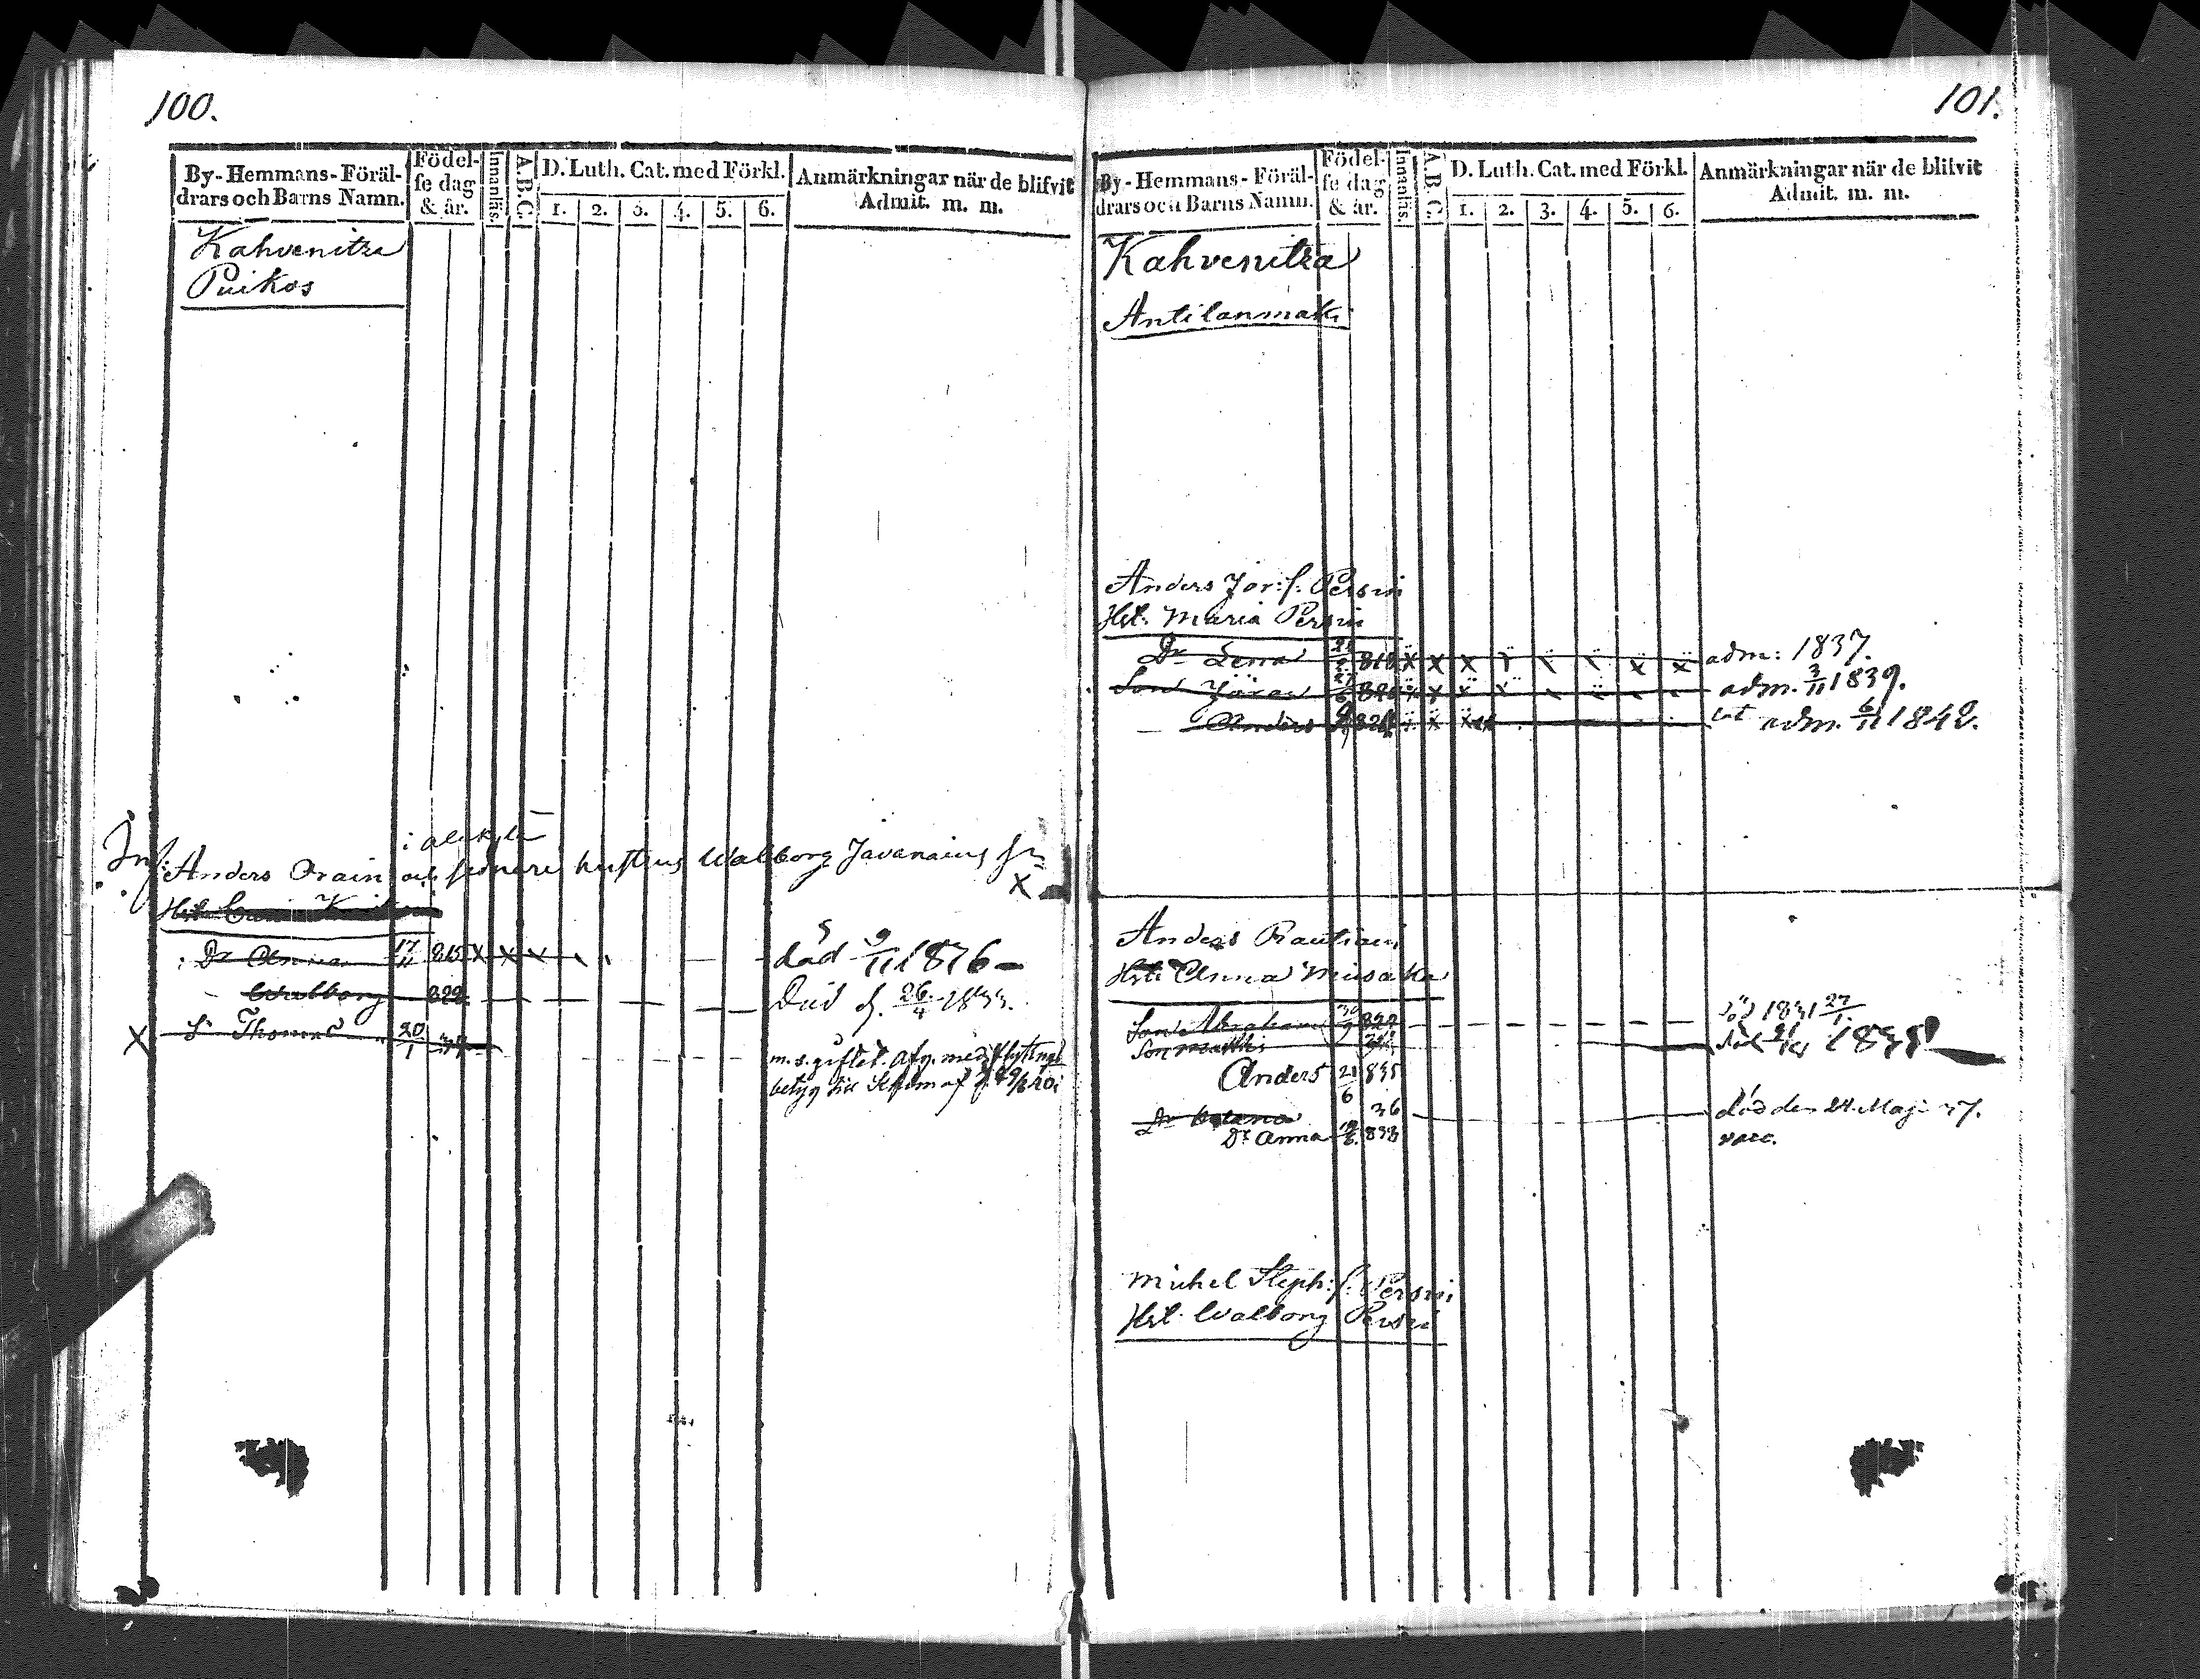 100.
By-Hemmans-Föräl-
drars och Barns Namn.
Födel-
se dag
& år.
Innanläs.
A.B.C.
D. Luth. Cat. med Förkl.
1. 2. 3. 4. 5. 6.
Anmärkningar när de blifvit
Admit. m. m.
Kahvenitza
Puikos
i alakylä
Inh: Anders Orain och senare hustrus Walborg Javanains
X
Hst.
Dr Anna 17/11 815 X X X död 9/11 1876
Walborg 822. Död d. 26/4 1833.
X S. Thomas 20/1 m.s. giftet. Afg. med flyttngs
betyg till
101.
By-Hemmans-Föräl-
drars och Barns Namn.
Födel-
se dag
& år.
Innanläs.
A.B.C.
D. Luth. Cat. med Förkl.
1. 2. 3. 4. 5. 6.
Anmärkningar när de blifvit
Admit. m. m.
Kahvenitza
Antilanmäki
Anders Jör:s: Persin
Hst. Maria Persin
Dr Lena 818 adm: 1837.
Son Jöran 27/6 820 adm. 3/11 1839.
— Anders adm. 6/11 1842.
Anders Rautiain
Hst. Anna Musaka
Son Abraham 30/9 829 död 1831 27/1.
Son Matthi död
Anders 21/6 835
36 död den 24. Maji 37.
Dr Anna 838 vacc.
Michel Steph:s: Persin
Hst. Walborg Persin